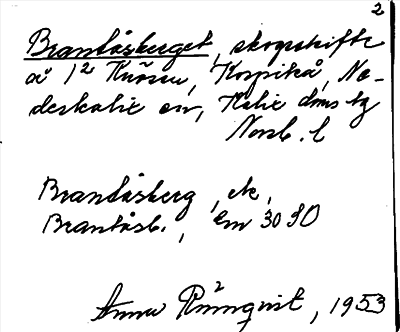 2
Brantåsberget, skogsskifte
å 1² Knösen, Korpikå, Ne-
derkalix sn, Kalix dms tg
Norrb. l
Brantåsberg, ek,
Brantåsb., Em 3090
Anna Rönnqvist, 1953